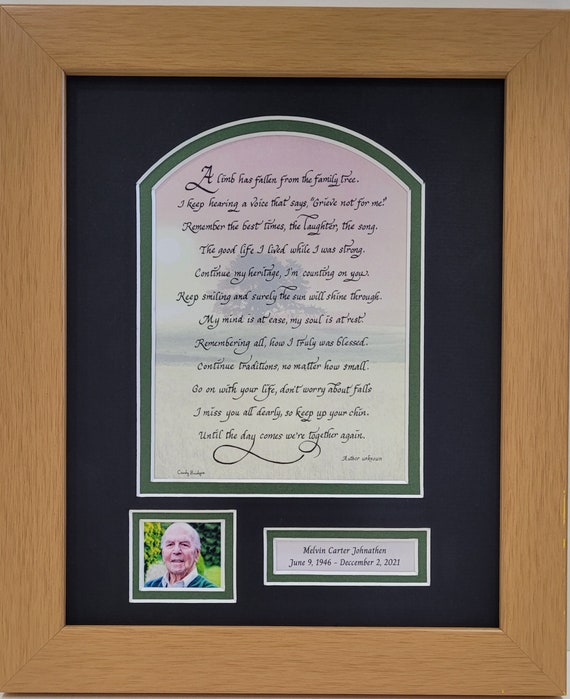 A limb has fallen from the family tree.
I keep hearing a voice that says, "Grieve not for me."
Remember the best times, the laughter, the song.
The good life I lived while I was strong.
Continue my heritage, I'm counting on you.
Keep smiling and surely the sun will shine through.
My mind is at ease, my soul is at rest.
Remembering all, how I truly was blessed.
Continue traditions, no matter how small.
Go on with your life, don't worry about falls
I miss you all dearly, so keep up your chin.
Until the day comes we're together again.
Author unknown
Melvin Carter Johnathen
June 9, 1946 - Deccember 2, 2021